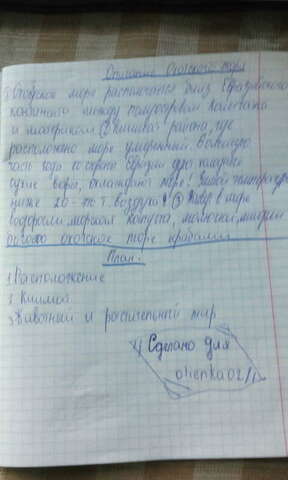 Описание Охотского моря
1) Охотское море расположено близ Евразийского
континента между полуостровом Камчатка
и материком. 2) Климат района, где
расположено море умеренный. Большую
часть года со севера Евразии дуют холодные
сухие ветры, охлаждают море. Зимой температура
ниже 20 воздуха. 3) Живут в море
водоросли, морская капуста, моллюски, мидии
богато охотское море крабами
План:
1. Расположение
2. Климат
3. Животный и растительный мир
Сделано для
olienka02